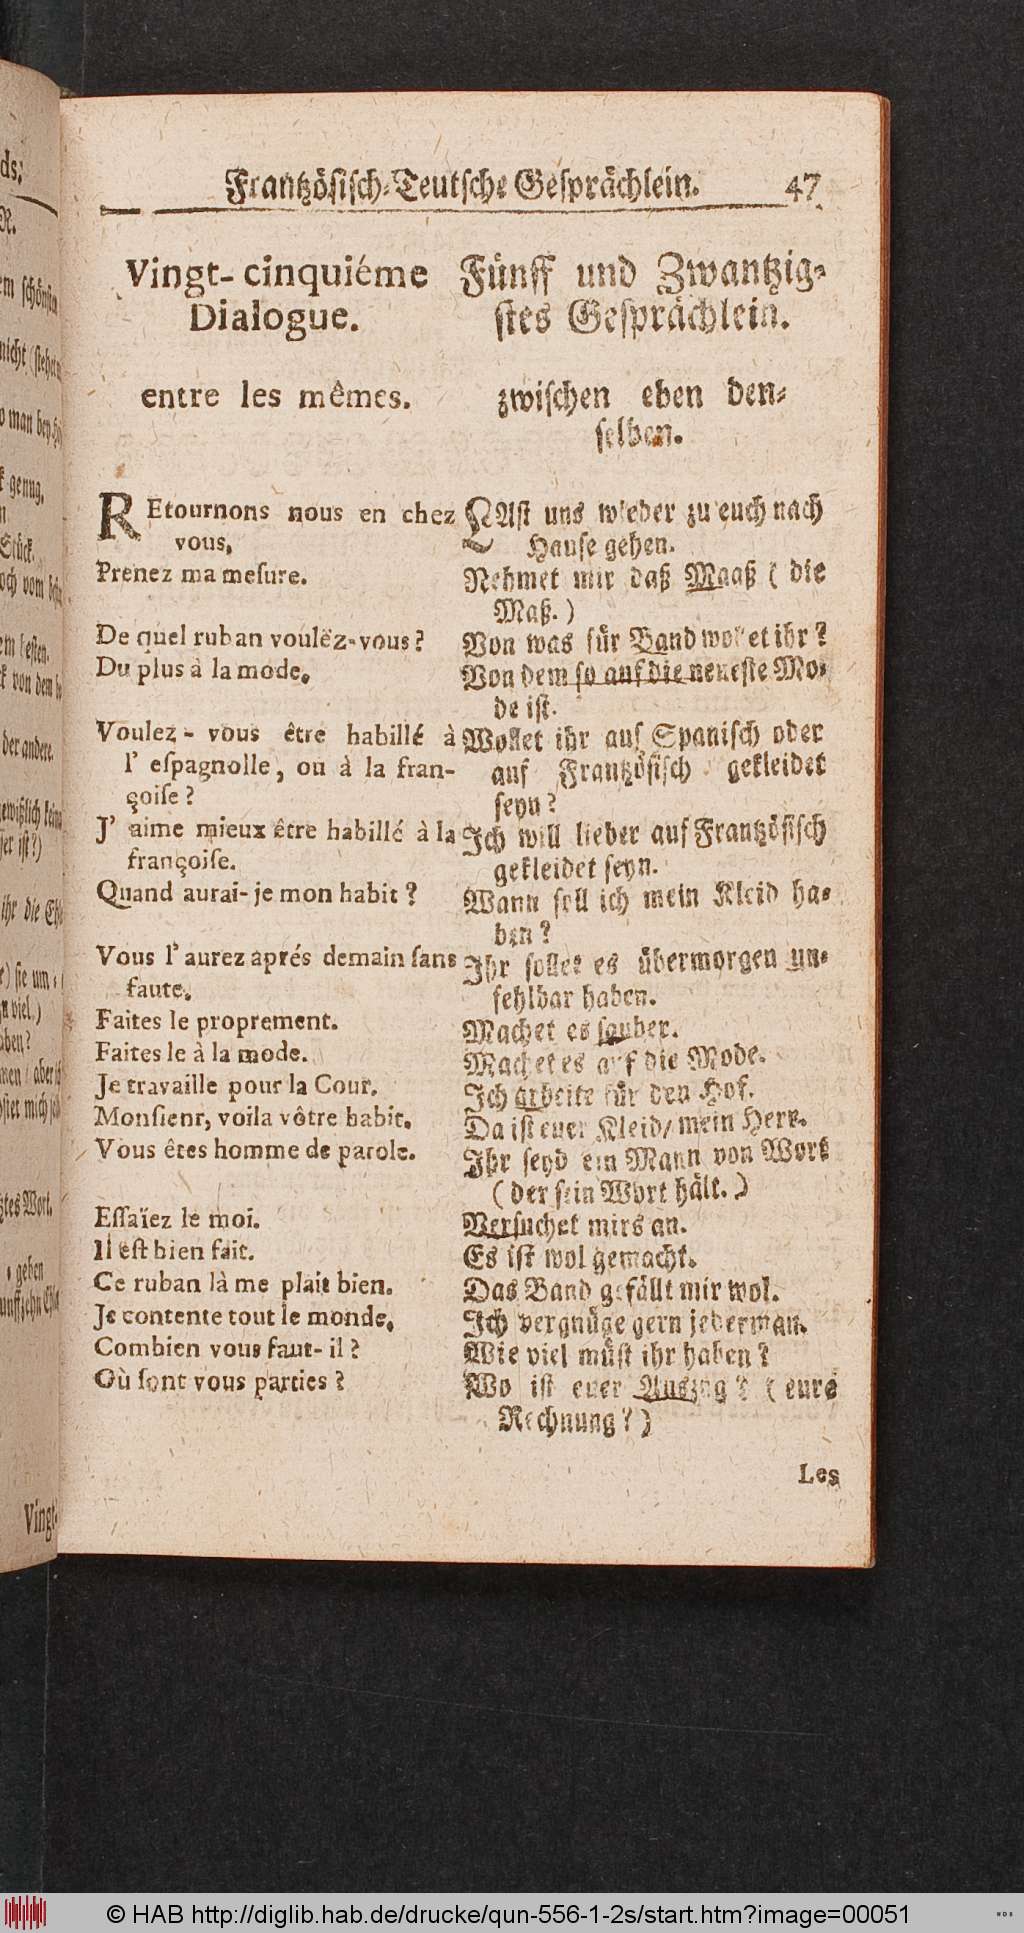 Frantzösisch-Teutsche Gesprächlein. 47
Vingt-cinquiéme
Dialogue.
entre les mêmes.
REtournons nous en chez
vous.
Prenez ma mesure.
De quel ruban voulëz-vous?
Du plus à la mode.
Voulez-vous être habillé à
l'espagnolle, ou à la fran-
çoise?
J'aime mieux être habillé à la
françoise.
Quand aurai-je mon habit?
Vous l'aurez aprés demain sans
faute.
Faites le proprement.
Faites le à la mode.
Je travaille pour la Cour.
Monsieur, voila vôtre habit.
Vous êtes homme de parole.
Essaïez le moi.
Il est bien fait.
Ce ruban là me plait bien.
Je contente tout le monde.
Combien vous faut-il?
Où sont vous parties?
Fünff und Zwantzig-
stes Gesprächlein.
zwischen eben den-
selben.
LAst uns wieder zu euch nach
Hause gehen.
Nehmet mir daß Maaß (die
Maß.)
Von was für Band wollet ihr?
Von dem so auf die neueste Mo-
de ist.
Wollet ihr auf Spanisch oder
auf Frantzösisch gekleidet
seyn?
Ich will lieber auf Frantzösisch
gekleidet seyn.
Wann soll ich mein Kleid ha-
ben?
Ihr sollet es übermorgen un-
fehlbar haben.
Machet es sauber.
Machet es auf die Mode.
Ich arbeite für den Hof.
Da ist euer Kleid/ mein Herr.
Ihr seyd ein Mann von Wort
(der sein Wort hält.)
Versuchet mirs an.
Es ist wol gemacht.
Das Band gefällt mir wol.
Ich vergnüge gern jederman.
Wie viel müst ihr haben?
Wo ist euer Auszug? (eure
Rechnung?)
Les
ds;
R.
em schönsten
nicht (stehet
o man bey
k genug.
n
Stück.
och vom
em besten.
k von dem
der andere.
gewißlich
ser ist?)
ihr die
e) sie um
zu viel.)
aben?
men/ aber
ostet mich
ztes Wort.
geben
unffzehn
Vingt-
© HAB http://diglib.hab.de/drucke/qun-556-1-2s/start.htm?image=00051